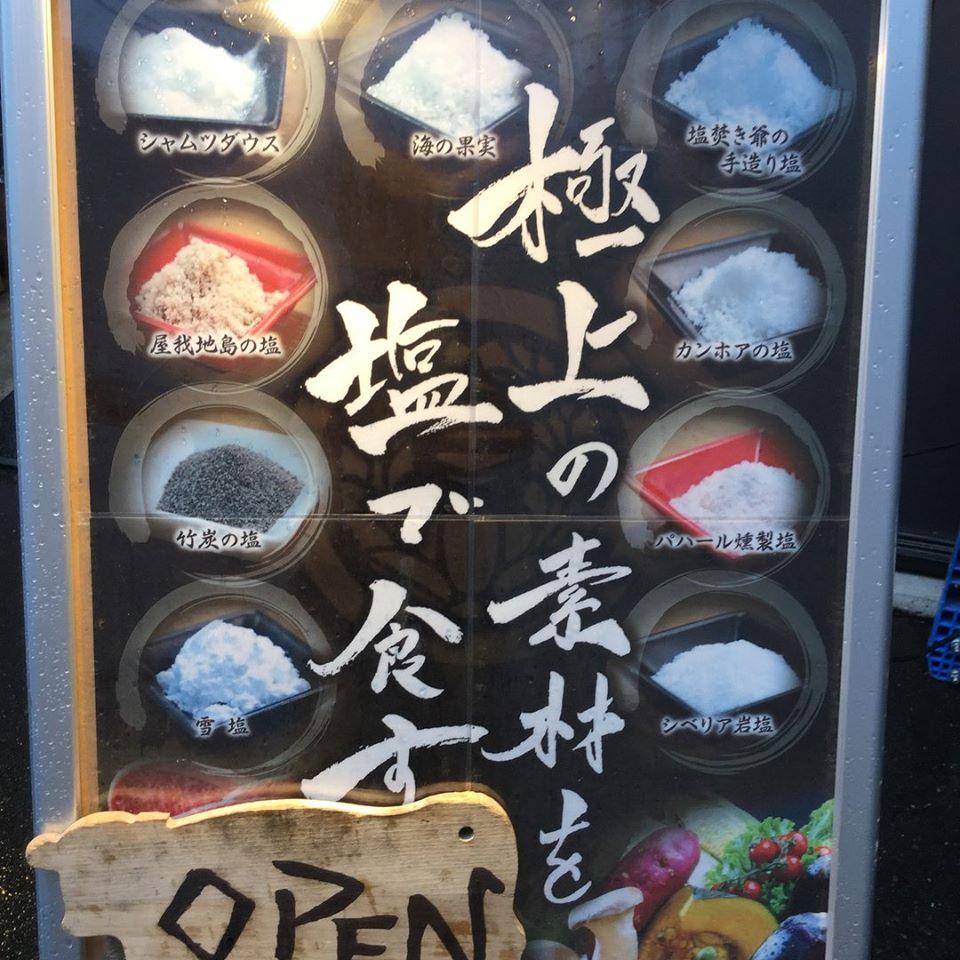 極上の素材を
塩で食す
シャムツダウス
海の果実
塩焚き爺の
手造り塩
屋我地島の塩
カンホアの塩
竹炭の塩
パハール燻製塩
雪塩
シベリア岩塩
OPEN